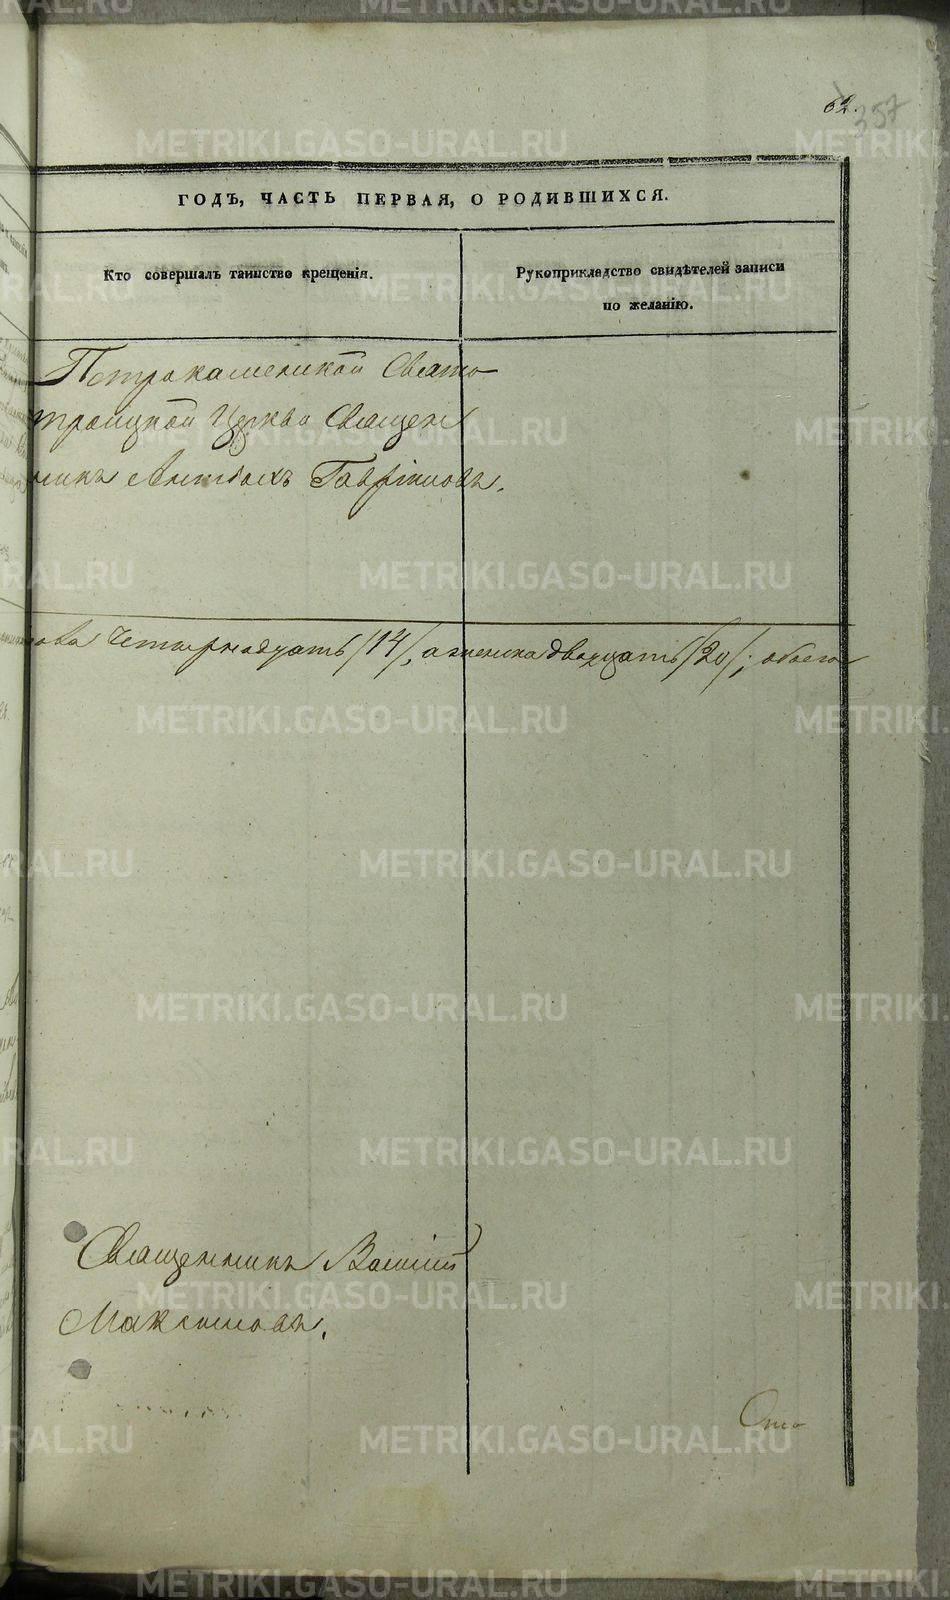 62.
357
ГОДЪ, ЧАСТЬ ПЕРВАЯ, О РОДИВШИХСЯ.
Кто совершалъ таинство крещенія.
Рукоприкладство свидѣтелей записи
по желанію.
Петрокаменской Свято
троицкой Церкви Священ
никъ Антоній Гаврiиловъ.
четырнадцать /14/, а женска двадцать /20/; обоего
Священникъ Василій
Максимовъ.
METRIKI.GASO-URAL.RU